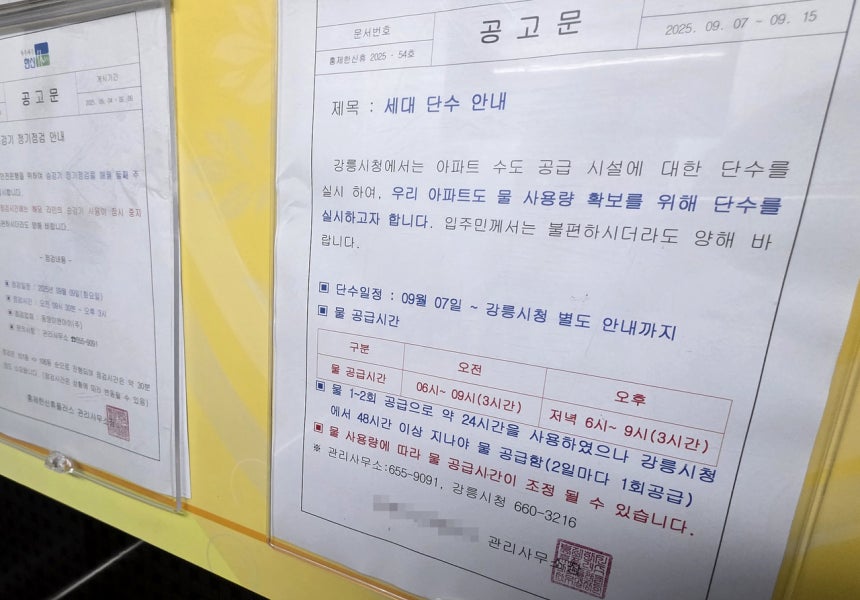 한신
게시기간
공 고 문
2025. 09. 04 - 09. 09
승강기 정기점검 안내
안전운행을 위하여 승강기 정기점검을 매월 둘째 주
실시합니다.
점검시간에는 해당 라인의 승강기 사용이 잠시 중지
불편하시더라도 양해 바랍니다.
- 점검내용 -
▣ 점검일정 : 2025년 09월 09일(화요일)
▣ 점검시간 : 오전 09시 30분 ~ 오후 3시
▣ 점검업체 :
▣ 문의사항 : 관리사무소 ☎655-9091
101동 => 106동 순으로 진행되며 점검시간은 약 20분
정도 소요됩니다. (점검시간은 상황에 따라 변동될 수 있음)
홍제한신휴플러스 관리사무소장
문서번호
공 고 문
2025. 09. 07 - 09. 15
홍제한신휴 2025 - 54호
제목 : 세대 단수 안내
강릉시청에서는 아파트 수도 공급 시설에 대한 단수를
실시 하여, 우리 아파트도 물 사용량 확보를 위해 단수를
실시하고자 합니다. 입주민께서는 불편하시더라도 양해 바
랍니다.
▣ 단수일정 : 09월 07일 ~ 강릉시청 별도 안내까지
▣ 물 공급시간
구분 오전 오후
물 공급시간 06시~ 09시(3시간) 저녁 6시~ 9시(3시간)
▣ 물 1~2회 공급으로 약 24시간을 사용하였으나 강릉시청
에서 48시간 이상 지나야 물 공급함(2일마다 1회공급)
▣ 물 사용량에 따라 물 공급시간이 조정 될 수 있습니다.
※ 관리사무소:655-9091, 강릉시청 660-3216
관리사무소장